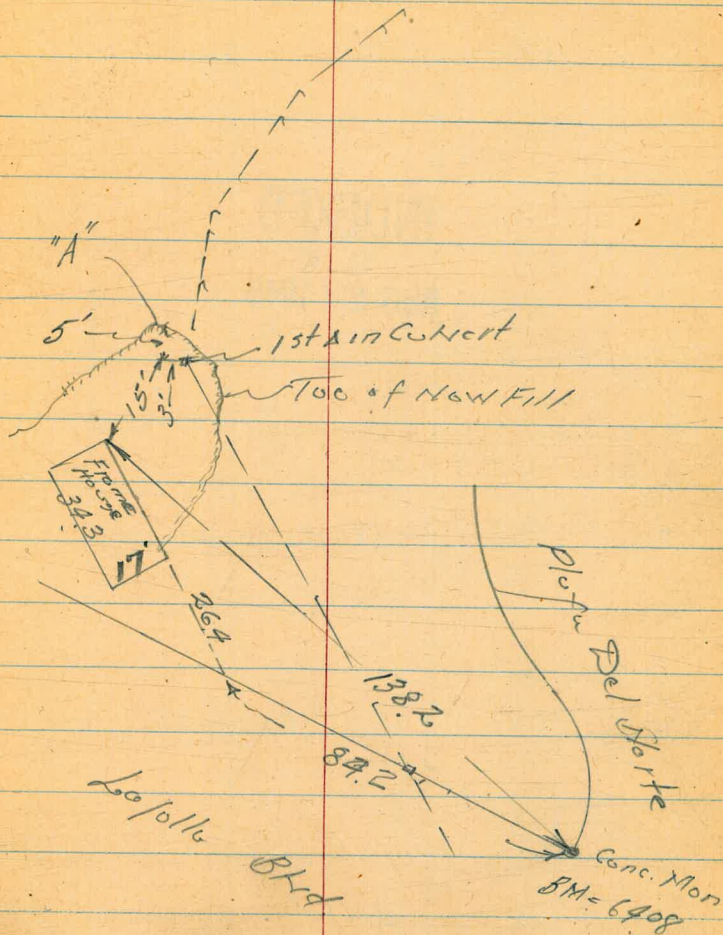 "A"
5'
1st Δ in Culvert
Toe of New Fill
15'
3'
Frame
House
34.3
17.
26.4
Playa Del Norte
138.2
84.2
La Jolla Blvd
Conc. Mon
BM = 64.08